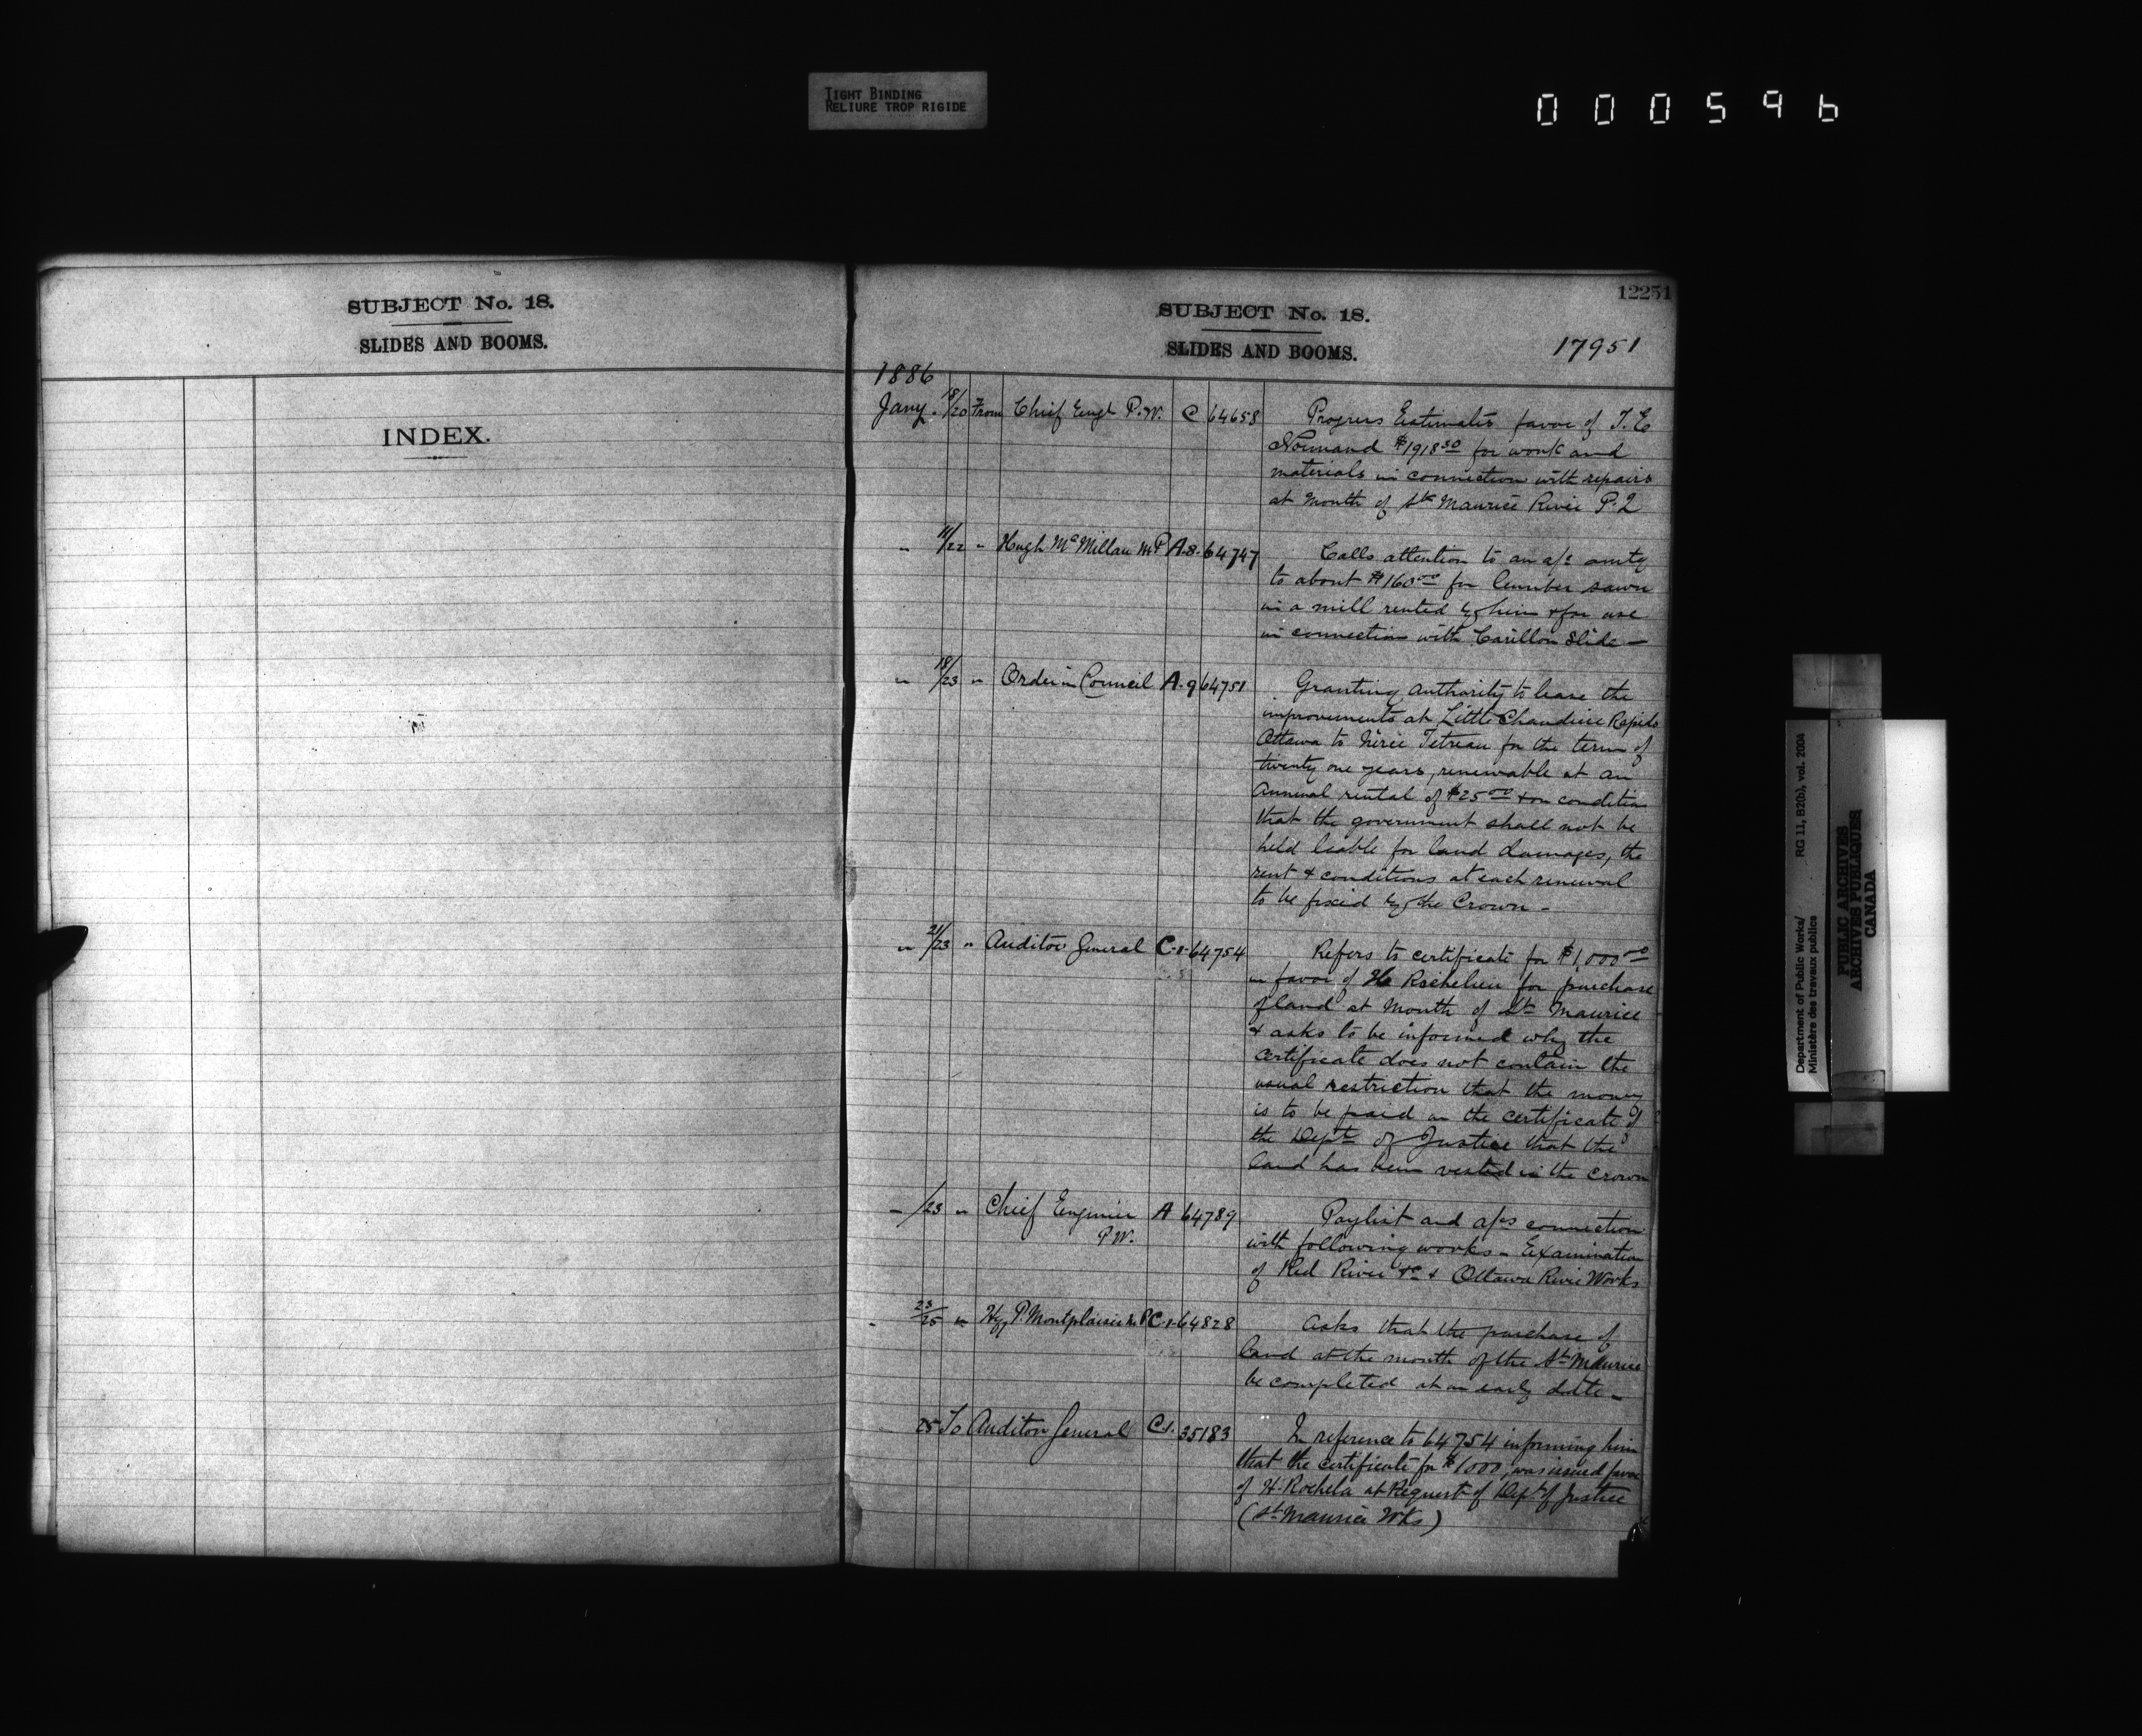 TIGHT BINDING
RELIURE TROP RIGIDE
000596
SUBJECT No. 18.
SLIDES AND BOOMS.
INDEX.
12251
SUBJECT No. 18.
SLIDES AND BOOMS.
17951
1886
Jany. 18/20 From Chief Engr P.W. C 64658 Progress Estimates favor of T. E
Normand $1918 30 for work and
materials in connection with repairs
at Mouth of St Maurice River P.Q
" 11/22 " Hugh McMillan M.P A.8. 64747 Calls attention to an a/c amtg
to about $160 00 for lumber sawn
in a mill rented by him & for use
in connection with Carillon Slide —
" 18/23 " Order in Council A.9 64751 Granting authority to lease the
improvements at Little Chaudiere Rapids
Ottawa to Nérée Tetreau for the term of
twenty one years, renewable at an
annual rental of $25 00 & on condition
that the government shall not be
held liable for land damages, the
rent & conditions at each renewal
to be fixed by the Crown —
" 21/23 " Auditor General C.1. 64754 Refers to certificate for $1,000 00
in favor of H. Rochelieu for purchase
of land at mouth of St Maurice
& asks to be informed why the
certificate does not contain the
usual restriction that the money
is to be paid on the certificate of
the Dept of Justice that the
land has been vested in the crown
" /23 " Chief Engineer A 64789 Paylist and a/cs connection
P.W. with following works — Examination
of Red River &c & Ottawa River Works
" 23/25 " Hyp P. Montplaisir M.P C.1. 64828 Asks that the purchase of
land at the mouth of the St Maurice
be completed at an early date —
" 25 To Auditor General C.1. 35183 In reference to 64754 informing him
that the certificate for $1000, was issued favor
of H. Rochela at Request of Dept of Justice
(St Maurice Wks)
Department of Public Works/
Ministère des travaux publics
RG 11, B2(b), vol. 2004
PUBLIC ARCHIVES
ARCHIVES PUBLIQUES
CANADA